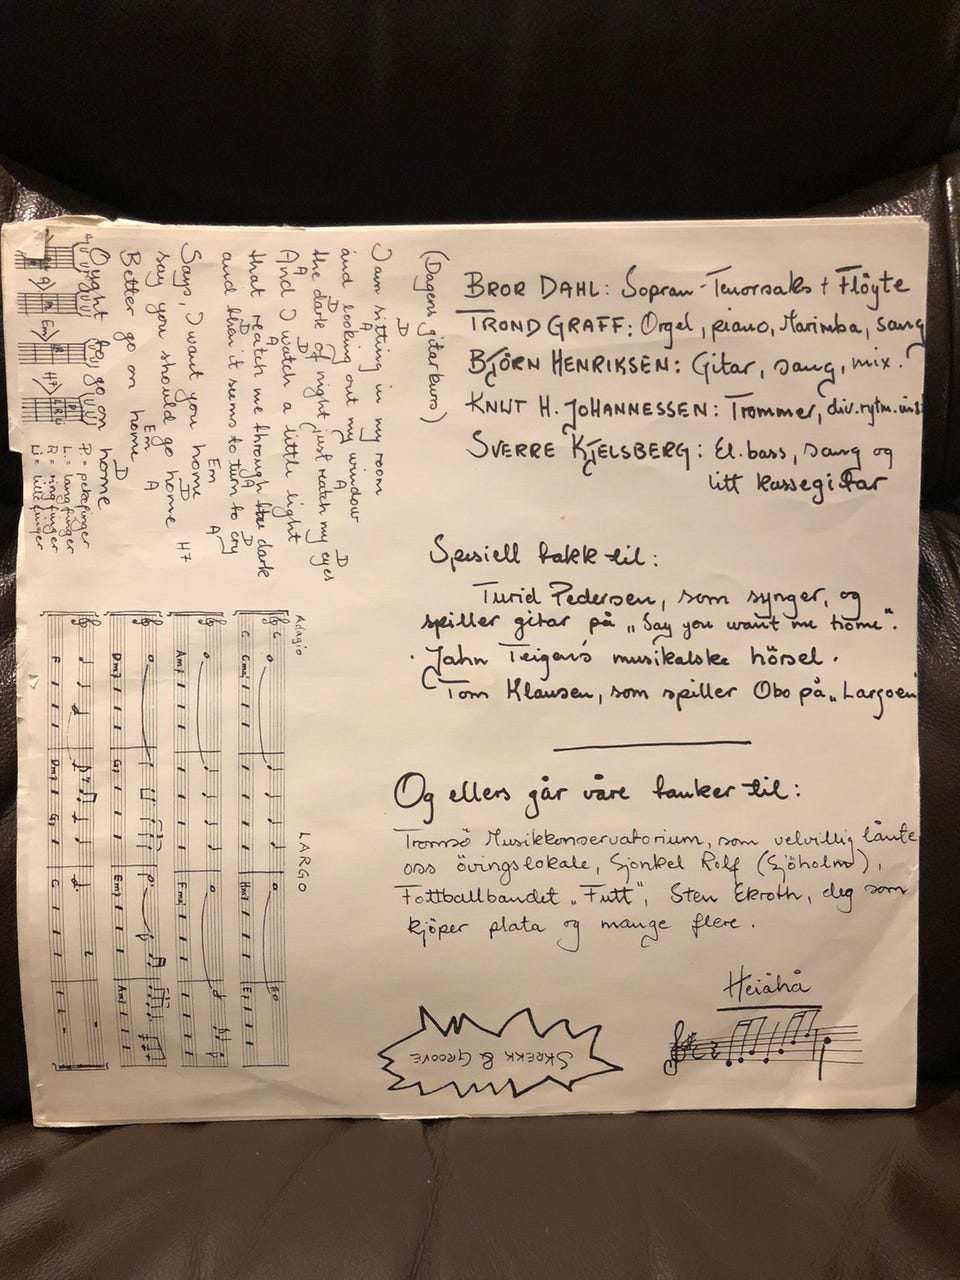 BROR DAHL: Sopran-Tenorsaks + Flöyte
TROND GRAFF: Orgel, piano, Marimba, sang
BJÖRN HENRIKSEN: Gitar, sang, mix.
KNUT H. JOHANNESSEN: Trommer, div. rytm. inst
SVERRE KJELSBERG: El. bass, sang og
litt kassegitar
Spesiell takk til:
Turid Pedersen, som synger, og
spiller gitar på „Say you want me home".
Jahn Teigen's musikalske hörsel.
Tom Klausen, som spiller Obo på „Largoen"
Og ellers går våre tanker til:
Tromsö Musikkonservatorium, som velvillig lånte
oss övingslokale, Sjonkel Rolf (Sjöholm),
Fottballbandet „Futt", Sten Ekroth, deg som
kjöper plata og mange flere.
Heiåhå
SKREKK & GROOVE
(Dagens gitarkurs)
D
I am sitting in my room
A
and looking out my window
A D
D
the dark of night just reatch my eyes
A G
And I watch a little light
D A
that reatch me through the dark
A D
and then it seems to turn to cry
Em A
Says, I want you home
D H7
say you should go home
Em A
Better go on home
D
Ought to go on home
A D Em H7
P = pekefinger
L = langfinger
R = ringfinger
Li = lillefinger
Adagio
LARGO
C Cmaj Hm7 E7
Am7 Fmaj
Dm7 G7 Em7 Am7
F Dm7 G7 C